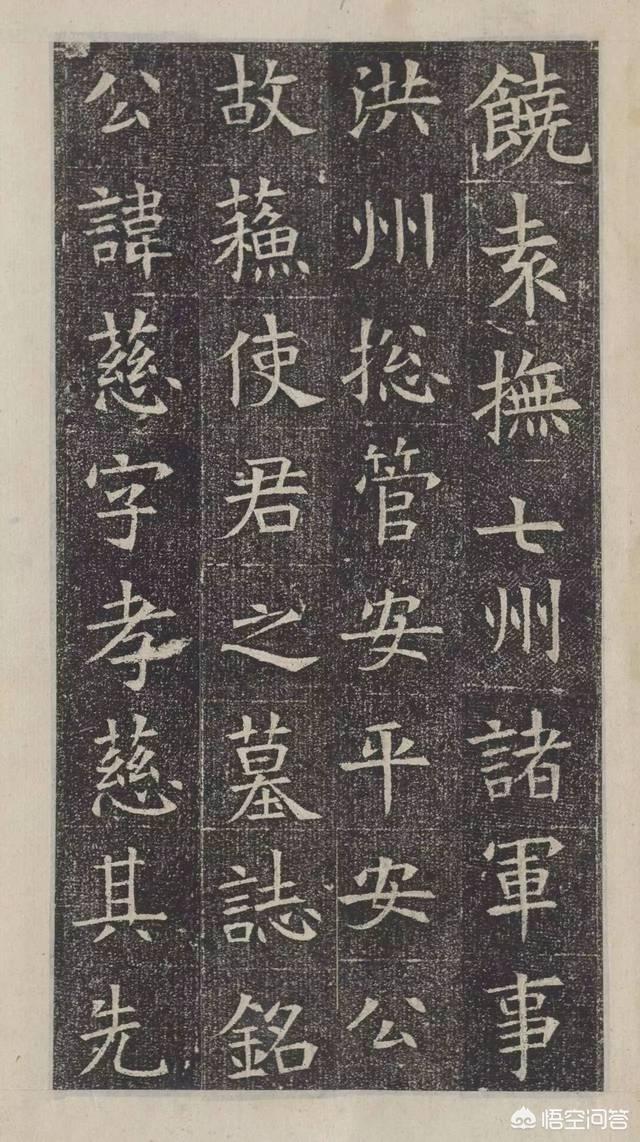 饒袁撫七州諸軍事
洪州捴管安平安公
故蘓使君之墓誌銘
公諱慈字孝慈其先
悟空问答